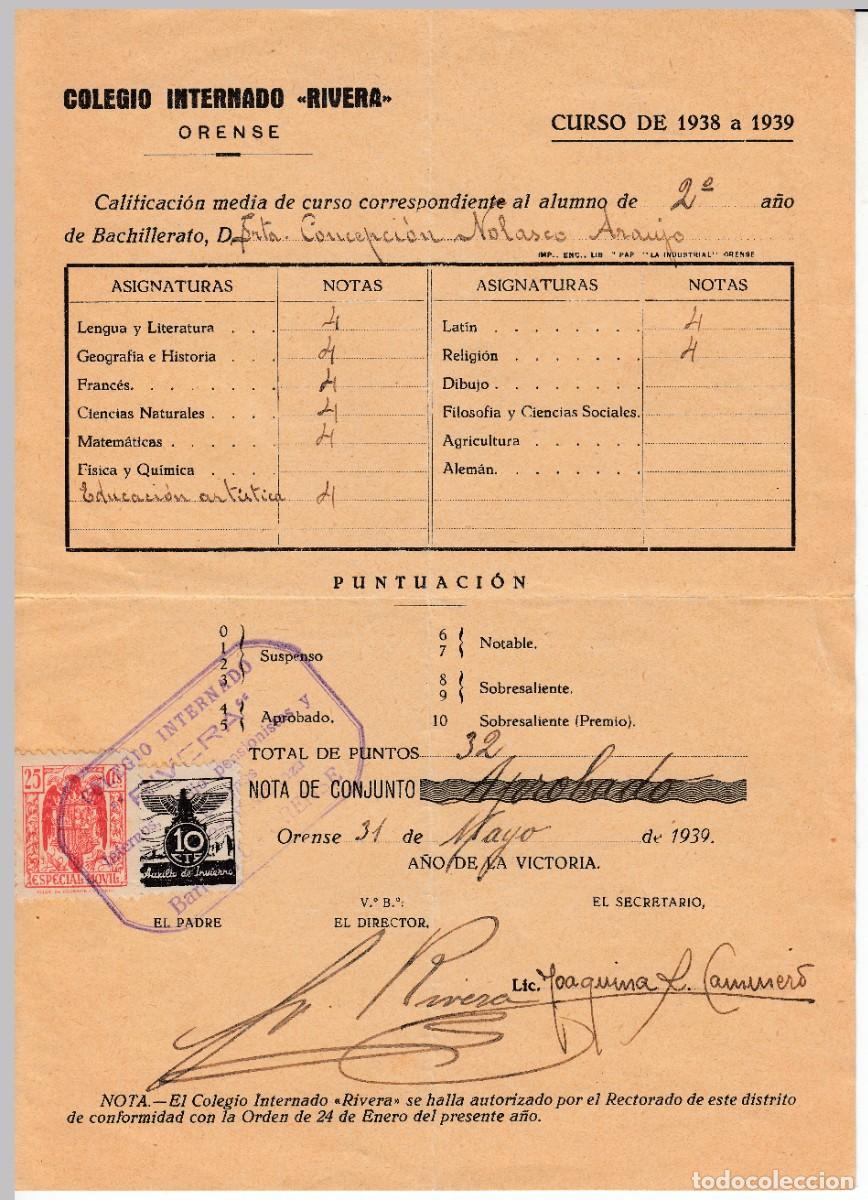 COLEGIO INTERNADO «RIVERA»
ORENSE
CURSO DE 1938 a 1939
Calificación media de curso correspondiente al alumno de 2º año
de Bachillerato, D. Srta. Concepción Nolasco Araujo
IMP., ENC., LIB " PAP "LA INDUSTRIAL" ORENSE
ASIGNATURAS NOTAS ASIGNATURAS NOTAS
Lengua y Literatura . . . 4 Latín . . . . . . . . 4
Geografía e Historia . . . 4 Religión . . . . . . . 4
Francés. . . . . . . . 4 Dibujo . . . . . . . .
Ciencias Naturales . . . 4 Filosofía y Ciencias Sociales.
Matemáticas . . . . . 4 Agricultura . . . . . .
Física y Química . . . Alemán. . . . . . .
Educación artística 4
PUNTUACIÓN
0
1
2
3
Suspenso
4
5
Aprobado.
6
7
Notable.
8
9
Sobresaliente.
10 Sobresaliente (Premio).
TOTAL DE PUNTOS 32
NOTA DE CONJUNTO Aprobado
Orense 31 de Mayo de 1939.
AÑO DE LA VICTORIA.
COLEGIO INTERNADO
"RIVERA"
Internos, pensionistas y
25 Cts
ESPECIAL MOVIL
10
CTS
Auxilio de Invierno
EL PADRE
V.º B.º:
EL DIRECTOR,
EL SECRETARIO,
Rivera
Lic. Joaquina L. Caminero
NOTA.—El Colegio Internado «Rivera» se halla autorizado por el Rectorado de este distrito
de conformidad con la Orden de 24 de Enero del presente año.
todocoleccion